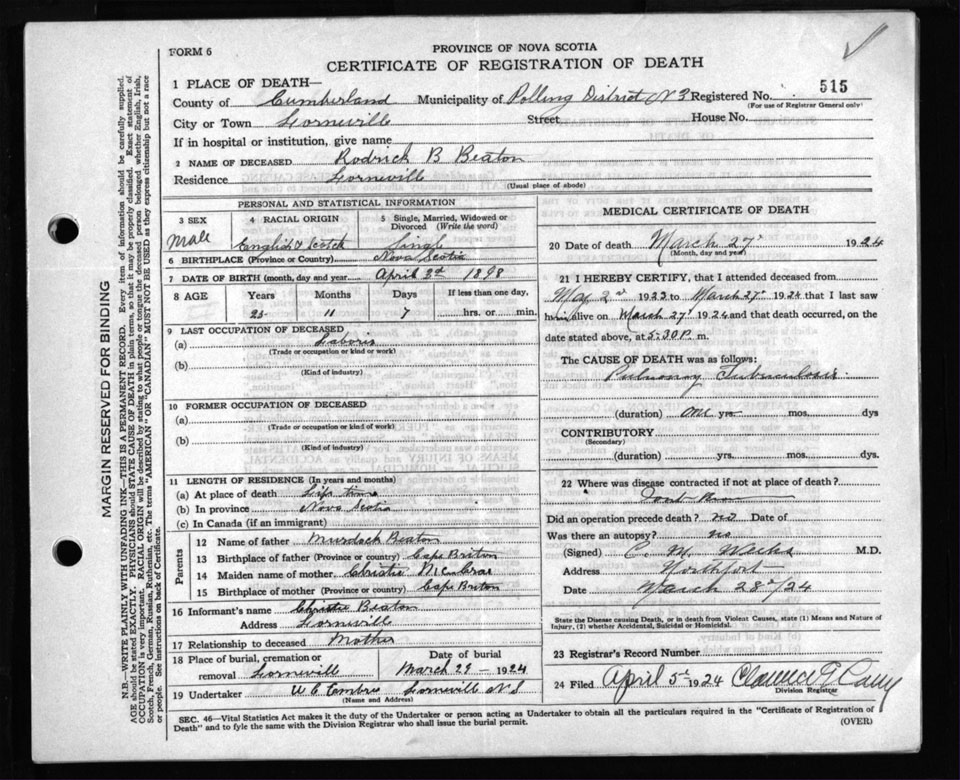 FORM 6
PROVINCE OF NOVA SCOTIA
CERTIFICATE OF REGISTRATION OF DEATH
1 PLACE OF DEATH—
County of Cumberland Municipality of Polling District N 3 Registered No. 515
(For use of Registrar General only)
City or Town Lorneville Street House No.
If in hospital or institution, give name
2 NAME OF DECEASED Rodrick B Beaton
Residence Lorneville
(Usual place of abode)
PERSONAL AND STATISTICAL INFORMATION
3 SEX Male
4 RACIAL ORIGIN English & Scotch
5 Single, Married, Widowed or Divorced (Write the word) Single
6 BIRTHPLACE (Province or Country) Nova Scotia
7 DATE OF BIRTH (month, day and year) April 3d 1898
8 AGE Years Months Days If less than one day,
25 11 7 hrs. or min.
9 LAST OCCUPATION OF DECEASED
(a) Laborer
(Trade or occupation or kind or work)
(b)
(Kind of industry)
10 FORMER OCCUPATION OF DECEASED
(a)
(Trade or occupation or kind of work)
(b)
(Kind of industry)
11 LENGTH OF RESIDENCE (In years and months)
(a) At place of death Life time
(b) In province Nova Scotia
(c) In Canada (if an immigrant)
Parents
12 Name of father Murdoch Beaton
13 Birthplace of father (Province or country) Cape Briton
14 Maiden name of mother Christie
15 Birthplace of mother (Province or country) Cape Briton
16 Informant's name Christie Beaton
Address Lorneville
17 Relationship to deceased Mother
18 Place of burial, cremation or removal Lorneville
Date of burial March 29 - 1924
19 Undertaker W C Embree Lorneville N S
(Name and Address)
MEDICAL CERTIFICATE OF DEATH
20 Date of death March 27 1924
(Month, day and year)
21 I HEREBY CERTIFY, that I attended deceased from
May 2 1923 to March 27 1924 that I last saw
him alive on March 27 1924 and that death occurred, on the
date stated above, at 5:30 P. m.
The CAUSE OF DEATH was as follows:
Pulmonary Tuberculosis
(duration) one yrs. mos. dys
CONTRIBUTORY
(Secondary)
(duration) yrs. mos. dys.
22 Where was disease contracted if not at place of death?
Dont Know
Did an operation precede death? no Date of
Was there an autopsy? no
(Signed) C. M. M.D.
Address Northport
Date March 28/24
State the Disease causing Death, or in death from Violent Causes, state (1) Means and Nature of Injury, (2) whether Accidental, Suicidal or Homicidal.
23 Registrar's Record Number
24 Filed April 5 1924 Clarence
Division Registrar
(OVER)
SEC. 46—Vital Statistics Act makes it the duty of the Undertaker or person acting as Undertaker to obtain all the particulars required in the "Certificate of Registration of
Death" and to fyle the same with the Division Registrar who shall issue the burial permit.
MARGIN RESERVED FOR BINDING
N.B.—WRITE PLAINLY WITH UNFADING INK—THIS IS A PERMANENT RECORD. Every item of information should be carefully supplied.
AGE should be stated EXACTLY. PHYSICIANS should STATE CAUSE OF DEATH in plain terms, so that it may be properly classified. Exact statement of
OCCUPATION is very important. RACIAL ORIGIN will be described by stating to what people or tongue the deceased person belonged whether English, Irish,
Scotch, French, German, Russian, Ruthenian, etc. The terms "AMERICAN" OR "CANADIAN" MUST NOT BE USED as they express citizenship but not a race
or people. See instructions on back of Certificate.